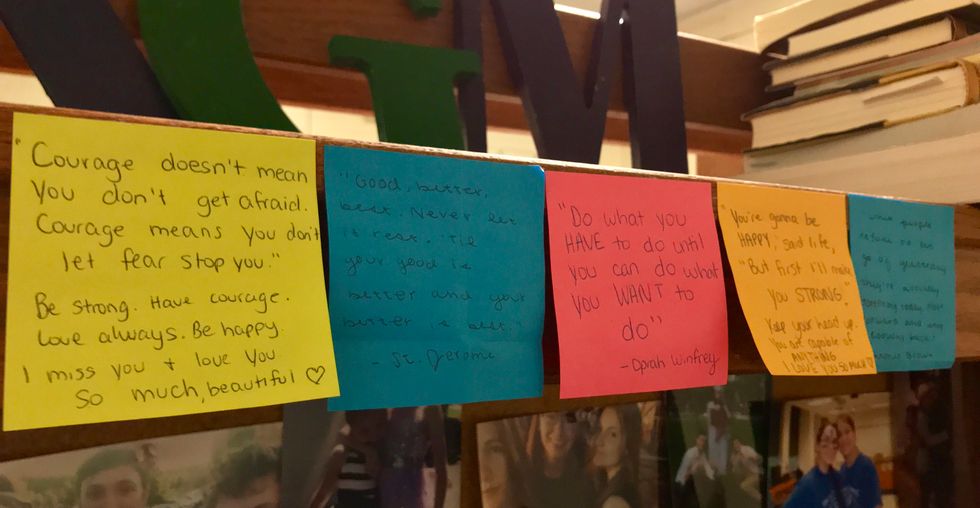 GM
"Courage doesn't mean
you don't get afraid.
Courage means you don't
let fear stop you."
Be strong. Have courage.
Love always. Be happy.
I miss you + love you
so much, beautiful ♡
"Good, better,
best. Never let
it rest. 'Til
your good is
better and your
better is best."
- St. Jerome
"Do what you
HAVE to do until
you can do what
you WANT to
do"
- Oprah Winfrey
"You're gonna be
HAPPY," said life,
"But first I'll make
you STRONG"
Keep your head up.
You are capable of
ANYTHING
I LOVE YOU SO MUCH
people
go of yesterday
today.
and stop
looking back!